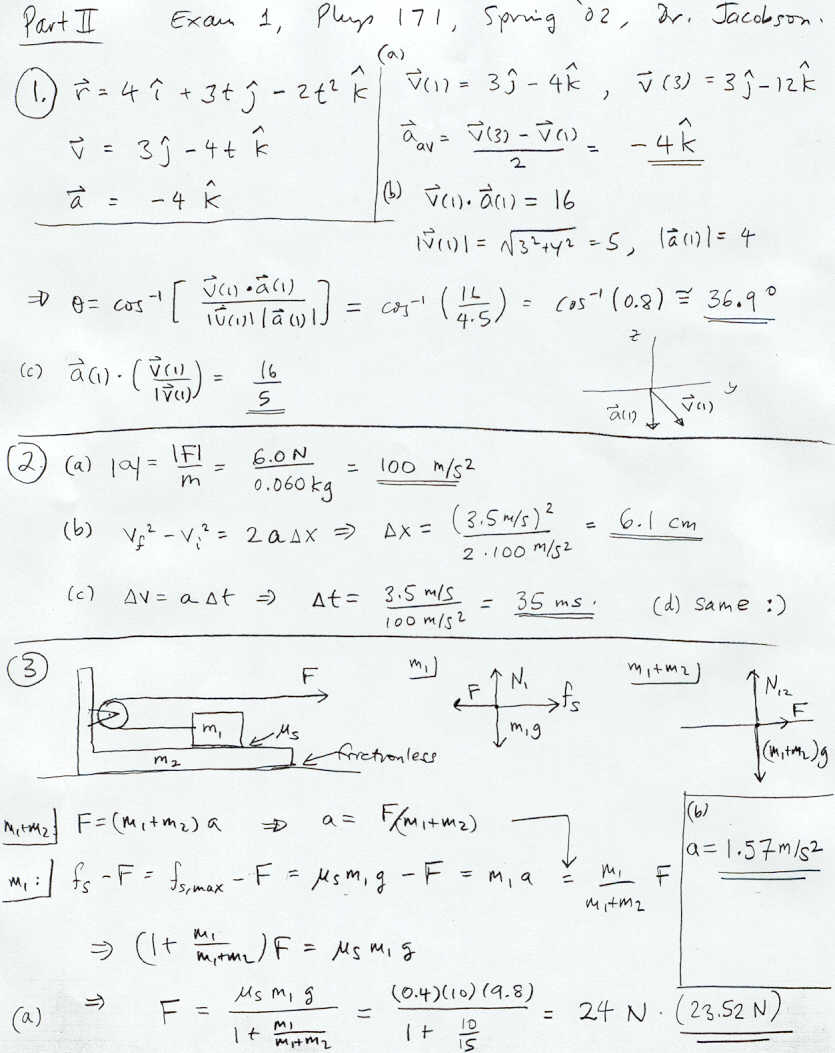 Part II Exam 1, Phys 171, Spring '02, Dr. Jacobson.
1. r⃗ = 4 î + 3t ĵ - 2t² k̂
v⃗ = 3ĵ - 4t k̂
a⃗ = -4 k̂
(a)
v⃗(1) = 3ĵ - 4k̂ , v⃗(3) = 3ĵ - 12k̂
a⃗av = (v⃗(3) - v⃗(1))/2 = -4 k̂
(b) v⃗(1)·a⃗(1) = 16
|v⃗(1)| = √(3²+4²) = 5, |a⃗(1)| = 4
⇒ θ = cos⁻¹[ v⃗(1)·a⃗(1) / |v⃗(1)||a⃗(1)| ] = cos⁻¹(16/4·5) = cos⁻¹(0.8) ≅ 36.9°
(c) a⃗(1)·(v⃗(1)/|v⃗(1)|) = 16/5
z
y
a⃗(1) v⃗(1)
2. (a) |a| = |F|/m = 6.0 N/0.060 kg = 100 m/s²
(b) vf² - vi² = 2aΔx ⇒ Δx = (3.5 m/s)²/2·100 m/s² = 6.1 cm
(c) Δv = aΔt ⇒ Δt = 3.5 m/s/100 m/s² = 35 ms. (d) same :)
3
F
m₁
μs
m₂
frictionless
m₁
N₁
F fs
m₁g
m₁+m₂
N₁₂
F
(m₁+m₂)g
m₁+m₂: F = (m₁+m₂)a ⇒ a = F/(m₁+m₂)
m₁: fs - F = fs,max - F = μs m₁ g - F = m₁ a = m₁/(m₁+m₂) F
(b)
a = 1.57 m/s²
⇒ (1 + m₁/(m₁+m₂)) F = μs m₁ g
(a) ⇒ F = μs m₁ g/(1 + m₁/(m₁+m₂)) = (0.4)(10)(9.8)/(1 + 10/15) = 24 N. (23.52 N)